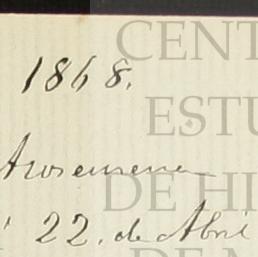 CENT
1868.
ESTU
DE HI
22. de Abril
DE M